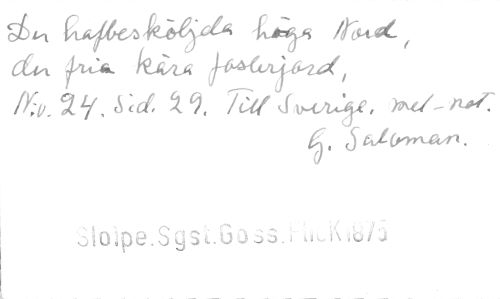 Du hafbesköljda höga Nord,
du fria kära fosterjord,
N:o. 24. Sid. 29. Till Sverige. mel-not.
G. Saloman.
Stolpe.Sgst.Goss.Flick.1875